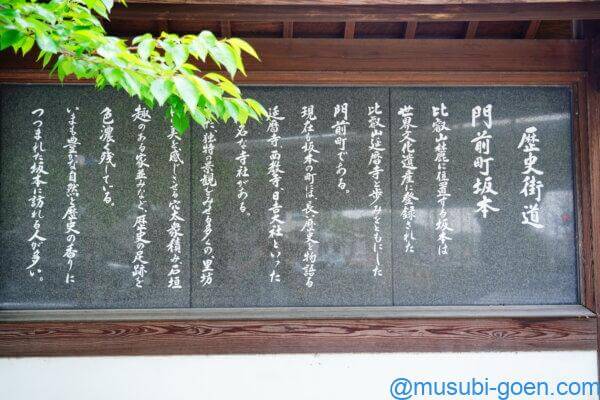 歴史街道
門前町坂本
比叡山麓に位置する坂本は
世界文化遺産に登録された
比叡山延暦寺と歩みをともにした
門前町である。
現在、坂本の町は、長い歴史を物語る
延暦寺、西教寺、日吉大社といった
名な寺社がある。
独特の景観をみせる多くの里坊
美を感じさせる穴太衆積み石垣
趣のある家並みなど、歴史の足跡を
色濃く残している。
いまも豊かな自然と歴史の香りに
つつまれた坂本に訪れる人が多い。
@musubi-goen.com